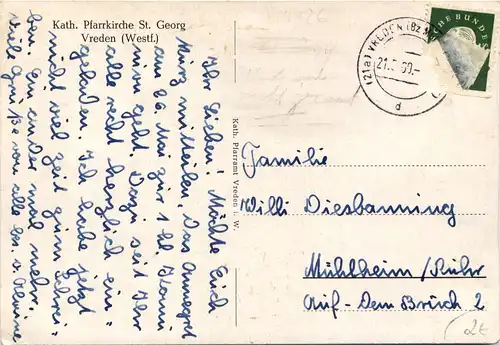 Kath. Pfarrkirche St. Georg
Vreden (Westf.)
Ihr Lieben! Möchte Euch
kurz mitteilen, das Annegret
am 26. Mai zur 1. hl. Komm
nion geht. Dazu seit Ihr
alle recht herzlich ein-
geladen. Ich habe jetzt
nicht viel Zeit zum Schrei-
ben. Ein ander mal mehr.
viel Grüße von alle bes. v.
Kath. Pfarramt Vreden i. W.
(21a) VREDEN (Bz.
21. 60.-
d
HE BUNDES
Familie
Willi Diesbanning
Mühlheim/Ruhr
Auf-Dem Brück 2
2€